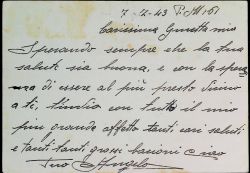 7-2-43 P.M. 151
Carissima Ginetta mia
Sperando sempre che la tua
salute sia buona, e con la speran
za di essere al più presto vicino
a te, t'invio con tutto il mio
più grande affetto tanti cari saluti
e tanti tanti grossi bacioni ciao
Tuo Angelo